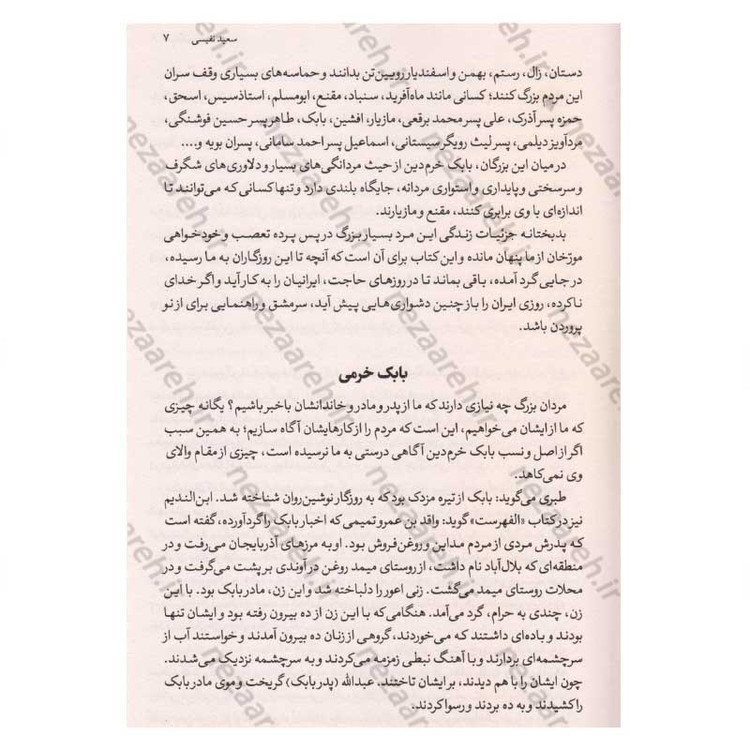 سعید نفیسی ۷
دستان، زال، رستم، بهمن و اسفندیار رویین‌تن بدانند و حماسه‌های بسیاری وقف سران
این مردم بزرگ کنند؛ کسانی مانند ماه‌آفرید، سنباد، مقنع، ابومسلم، استاذسیس، اسحق،
حمزه پسر آذرک، علی پسر محمد برقعی، مازیار، افشین، بابک، طاهر پسر حسین فوشنگی،
مردآویز دیلمی، پسر لیث رویگر سیستانی، اسماعیل پسر احمد سامانی، پسران بویه و....
در میان این بزرگان، بابک خرم‌دین از حیث مردانگی‌های بسیار و دلاوری‌های شگرف
و سرسختی و پایداری و استواری مردانه، جایگاه بلندی دارد و تنها کسانی که می‌توانند تا
اندازه‌ای با وی برابری کنند، مقنع و مازیارند.
بدبختانه جزئیات زندگی این مرد بسیار بزرگ در پس پرده تعصب و خودخواهی
مورّخان از ما پنهان مانده و این کتاب برای آن است که آنچه تا این روزگاران به ما رسیده،
در جایی گرد آمده، باقی بماند تا در روزهای حاجت، ایرانیان را به کار آید و اگر خدای
ناکرده، روزی ایران را باز چنین دشواری‌هایی پیش آید، سرمشق و راهنمایی برای از نو
پروردن باشد.
بابک خرمی
مردان بزرگ چه نیازی دارند که ما از پدر و مادر و خاندانشان باخبر باشیم؟ یگانه چیزی
که ما از ایشان می‌خواهیم، این است که مردم را از کارهایشان آگاه سازیم؛ به همین سبب
اگر از اصل و نسب بابک خرم‌دین آگاهی درستی به ما نرسیده است، چیزی از مقام والای
وی نمی‌کاهد.
طبری می‌گوید: بابک از تیره مزدک بود که به روزگار نوشین‌روان شناخته شد. ابن‌الندیم
نیز در کتاب «الفهرست» گوید: واقد بن عمرو تمیمی که اخبار بابک را گردآورده، گفته است
که پدرش مردی از مردم مداین و روغن‌فروش بود. او به مرزهای آذربایجان می‌رفت و در
منطقه‌ای که بلال‌آباد نام داشت، از روستای میمد روغن در آوندی بر پشت می‌گرفت و در
محلات روستای میمد می‌گشت. زنی اعور را دلباخته شد و این زن، مادر بابک بود. با این
زن، چندی به حرام، گرد می‌آمد. هنگامی‌که با این زن از ده بیرون رفته بود و ایشان تنها
بودند و باده‌ای داشتند که می‌خوردند، گروهی از زنان ده بیرون آمدند و خواستند آب از
سرچشمه‌ای بردارند و با آهنگ نبطی زمزمه می‌کردند و به سرچشمه نزدیک می‌شدند.
چون ایشان را با هم دیدند، بر ایشان تاختند. عبدالله (پدر بابک) گریخت و موی مادر بابک
را کشیدند و به ده بردند و رسوا کردند.
nezaareh.ir